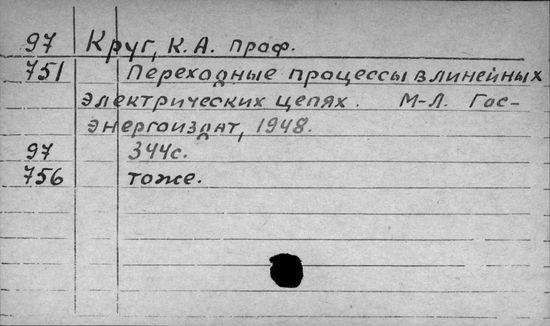 97 Круг, К. А. проф.
751 Переходные процессы в линейных
электрических цепях. М-Л. Гос-
энергоиздат, 1948.
97 344с.
756 тоже.